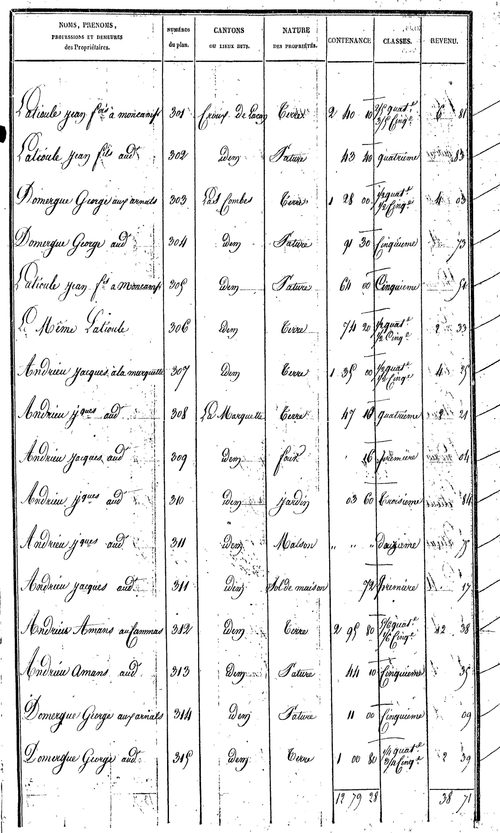 NOMS, PRENOMS, PROFESSIONS ET DEMEURES des Propriétaires. | NUMÉROS du plan. | CANTONS OU LIEUX DITS. | NATURE DES PROPRIÉTÉS. | CONTENANCE | CLASSES. | REVENU.
Laticule Jean fils à moncanif 301 Terre 2 40 10 2/5 quat.e 3/5 Cinq.e 6 81
Laticule Jean fils aud. 302 idem Pature 43 40 quatrième 83
Domergue George aux arnals 303 Las Combes Terre 1 28 00 1/2 quat.e 1/2 Cinq.e 4 03
Domergue George aud 304 idem Pature 91 30 Cinquieme 73
Laticule Jean fils à Moncanif 305 idem Pature 64 00 Cinquieme 51
Le Même Laticule 306 idem Terre 74 20 1/2 quat.e 1/2 Cinq.e 2 33
Andrieu Jacques à la marquette 307 idem Terre 1 35 00 1/2 quat.e 1/2 Cinq.e 4 25
Andrieu Jques aud. 308 La Marquette Terre 47 10 quatrième 2 21
Andrieu Jacques aud 309 idem four 16 première 04
Andrieu Jques aud 310 idem Jardin 03 60 troisieme 84
Andrieu Jques aud 311 idem Maison " " " douzieme 75
Andrieu Jacques aud. 311 idem Sol de maison 72 Première 17
Andrieu Amans au Cammas 312 idem Terre 2 95 80 5/6 quat.e 1/6 Cinq.e 12 38
Andrieu Amans aud. 313 idem Pature 44 10 Cinquieme 35
Domergue George aux arnals 314 idem Pature 11 00 Cinquieme 09
Domergue George aud. 315 idem Terre 1 00 80 1/4 quat.e 3/4 Cinq.e 2 39
12 79 28 38 71